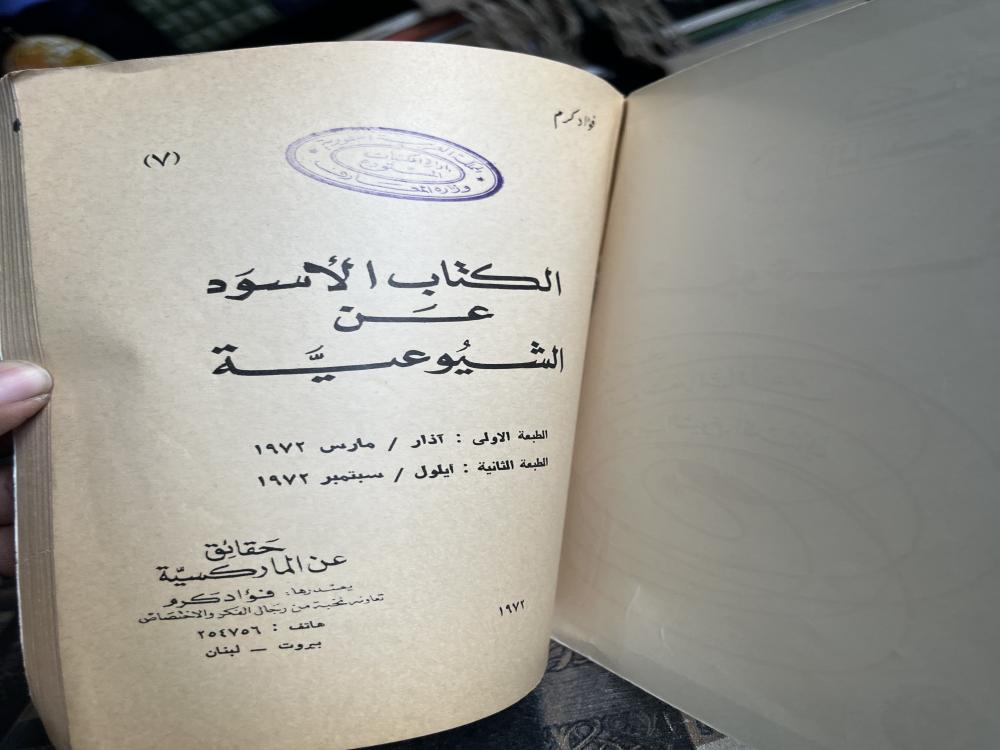 فؤاد كرم
(٧)
المملكة العربية السعودية
وزارة المعارف
الكتاب الأسوَد
عَن
الشيُوعيَّة
الطبعة الاولى : آذار / مارس ١٩٧٢
الطبعة الثانية : ايلول / سبتمبر ١٩٧٢
حَقائق
عن الماركسيَّة
يصدرها: فؤاد كرم
تعاونه نخبة من رجال الفكر والاختصاص
هاتف : ٢٥٤٧٥٦
بيروت – لبنان
١٩٧٢